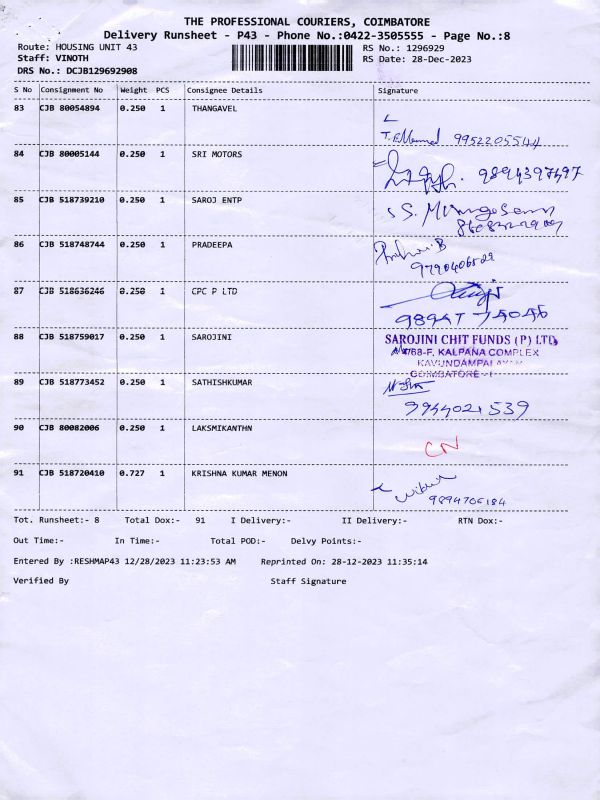 THE PROFESSIONAL COURIERS, COIMBATORE
Delivery Runsheet - P43 - Phone No.:0422-3505555 - Page No.:8
Route: HOUSING UNIT 43 RS No.: 1296929
Staff: VINOTH RS Date: 28-Dec-2023
DRS No.: DCJB129692908
S No Consignment No Weight PCS Consignee Details Signature
83 CJB 80054894 0.250 1 THANGAVEL
9952205544
84 CJB 80005144 0.250 1 SRI MOTORS
9894397497
85 CJB 518739210 0.250 1 SAROJ ENTP
86 CJB 518748744 0.250 1 PRADEEPA
9790406522
87 CJB 518636246 0.250 1 CPC P LTD
98947 75046
88 CJB 518759017 0.250 1 SAROJINI SAROJINI CHIT FUNDS (P) LTD,
KALPANA COMPLEX
KAVUNDAMPALAYAM
COIMBATORE
89 CJB 518773452 0.250 1 SATHISHKUMAR
9944021539
90 CJB 80082006 0.250 1 LAKSMIKANTHN
CN
91 CJB 518720410 0.727 1 KRISHNA KUMAR MENON
9894706184
Tot. Runsheet:- 8 Total Dox:- 91 I Delivery:- II Delivery:- RTN Dox:-
Out Time:- In Time:- Total POD:- Delvy Points:-
Entered By :RESHMAP43 12/28/2023 11:23:53 AM Reprinted On: 28-12-2023 11:35:14
Verified By Staff Signature